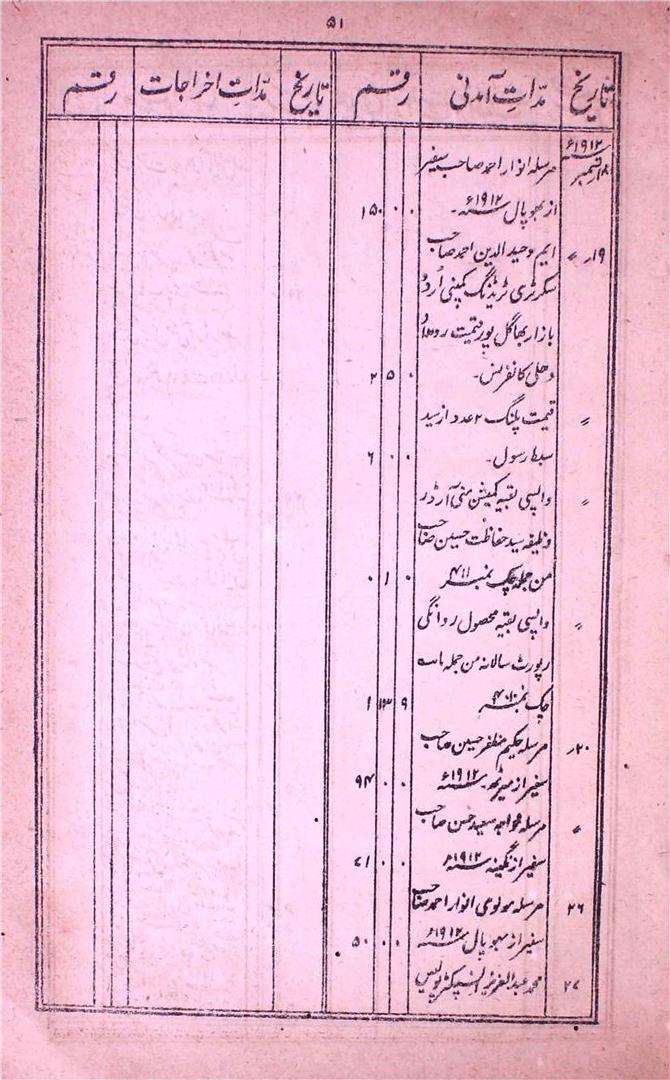 ۵۱
تاریخ مدّاتِ آمدنی رقم تاریخ مدّاتِ اخراجات رقم
۱۹۱۲ء
۱۸ ستمبر مرسلہ انوار احمد صاحب سفیر
از بھوپال ۱۹۱۲ء۔ ۱۵۰ ۰ ۰
۱۹ر 〃 ایم وحید الدین احمد صاحب
سکرٹری ٹریڈنگ کمپنی اُردو
بازار بھاگل پور قیمت روداد
دہلی کانفرنس۔ ۲ ۵ ۰
〃 قیمت پلنگ ۲ عدد از سید
سبط رسول۔ ۶ ۰ ۰
〃 واپسی بقیہ کمیشن منی آرڈر
وظیفہ سید حفاظت حسین صاحب
من جملہ چک نمبر ۰ ۱ ۰
〃 واپسی بقیہ محصول روانگی
رپورٹ سالانہ من جملہ
چک نمبر ۱ ۱۳ ۹
۲۰ر مرسلہ حکیم مظفر حسین صاحب
سفیر از میرٹھ۔ ۱۹۱۲ء ۹۴ ۰ ۰
〃 مرسلہ خواجہ سعید حسن صاحب
سفیر از نگینہ ۱۹۱۲ء ۷۱ ۰ ۰
۲۶ مرسلہ مولوی انوار احمد صاحب
سفیر از بھوپال ۱۹۱۲ء ۵۰ ۰ ۰
۲۷ محمد عبد العزیز انسپکٹر پولیس